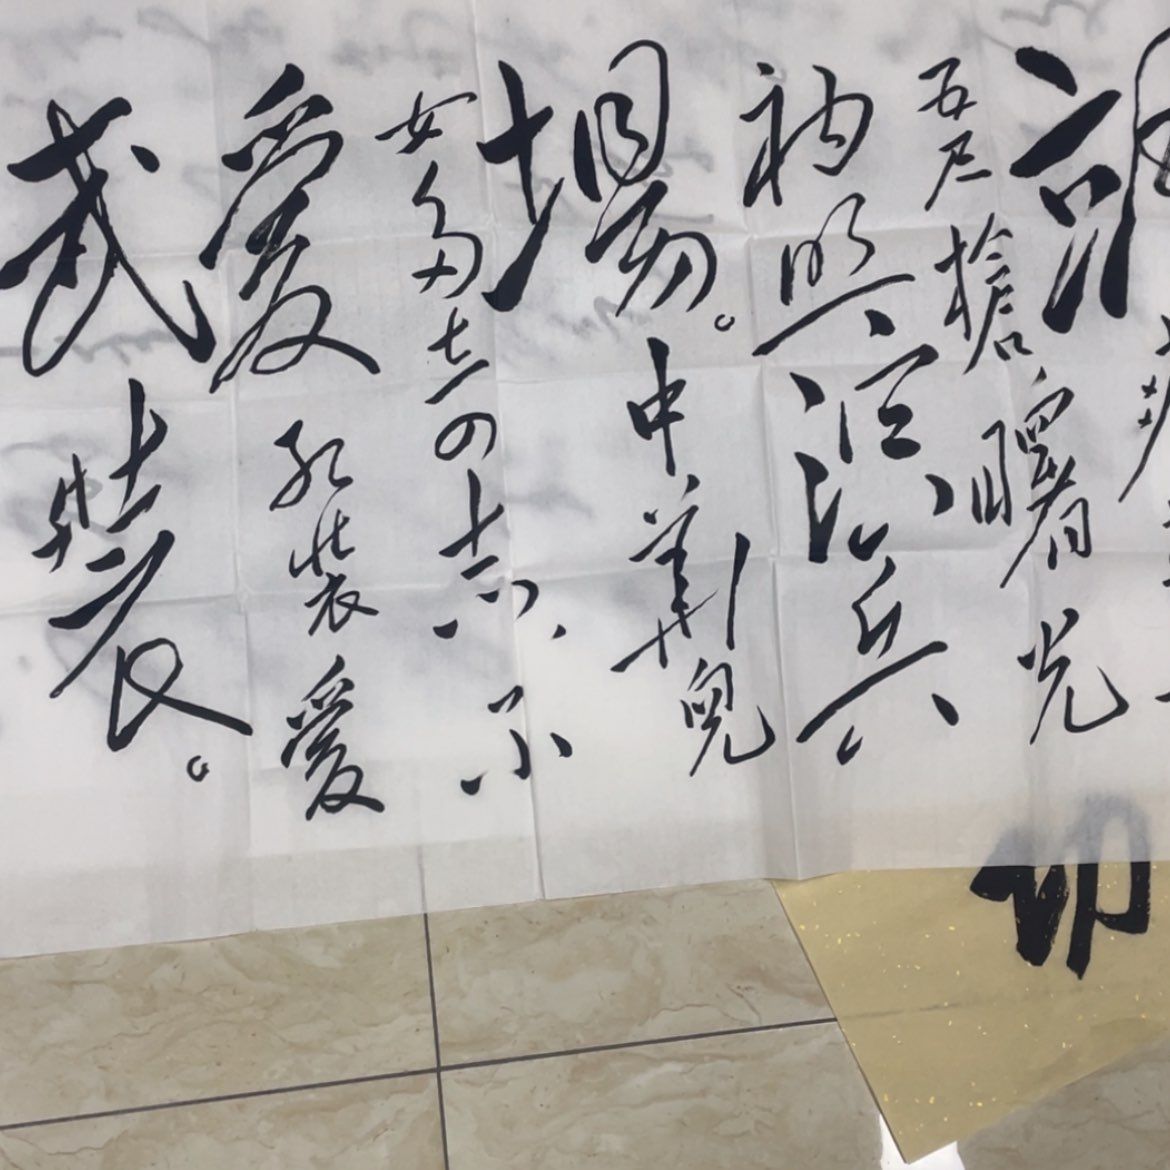 五尺槍曙光
初照演兵
場。中華兒
女多奇志不
愛紅裝愛
武裝。